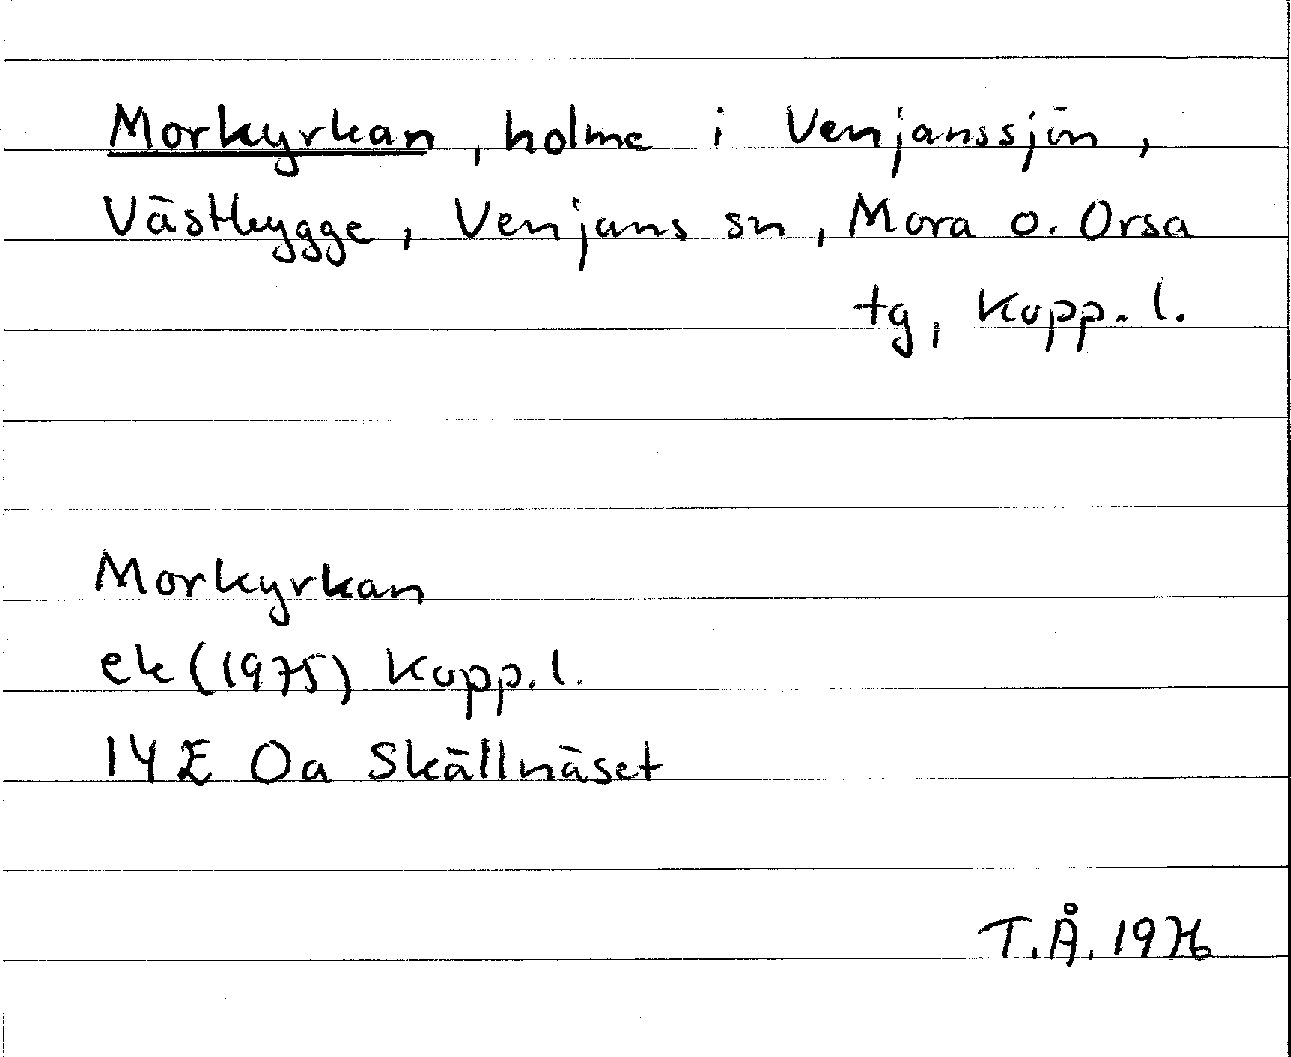 Morkyrkan, holme i Venjanssjön,
Västbygge, Venjans sn, Mora o. Orsa
tg, Kopp. l.
Morkyrkan
ek (1975) Kopp. l.
14 E 0a Skällnäset
T.Å. 1976